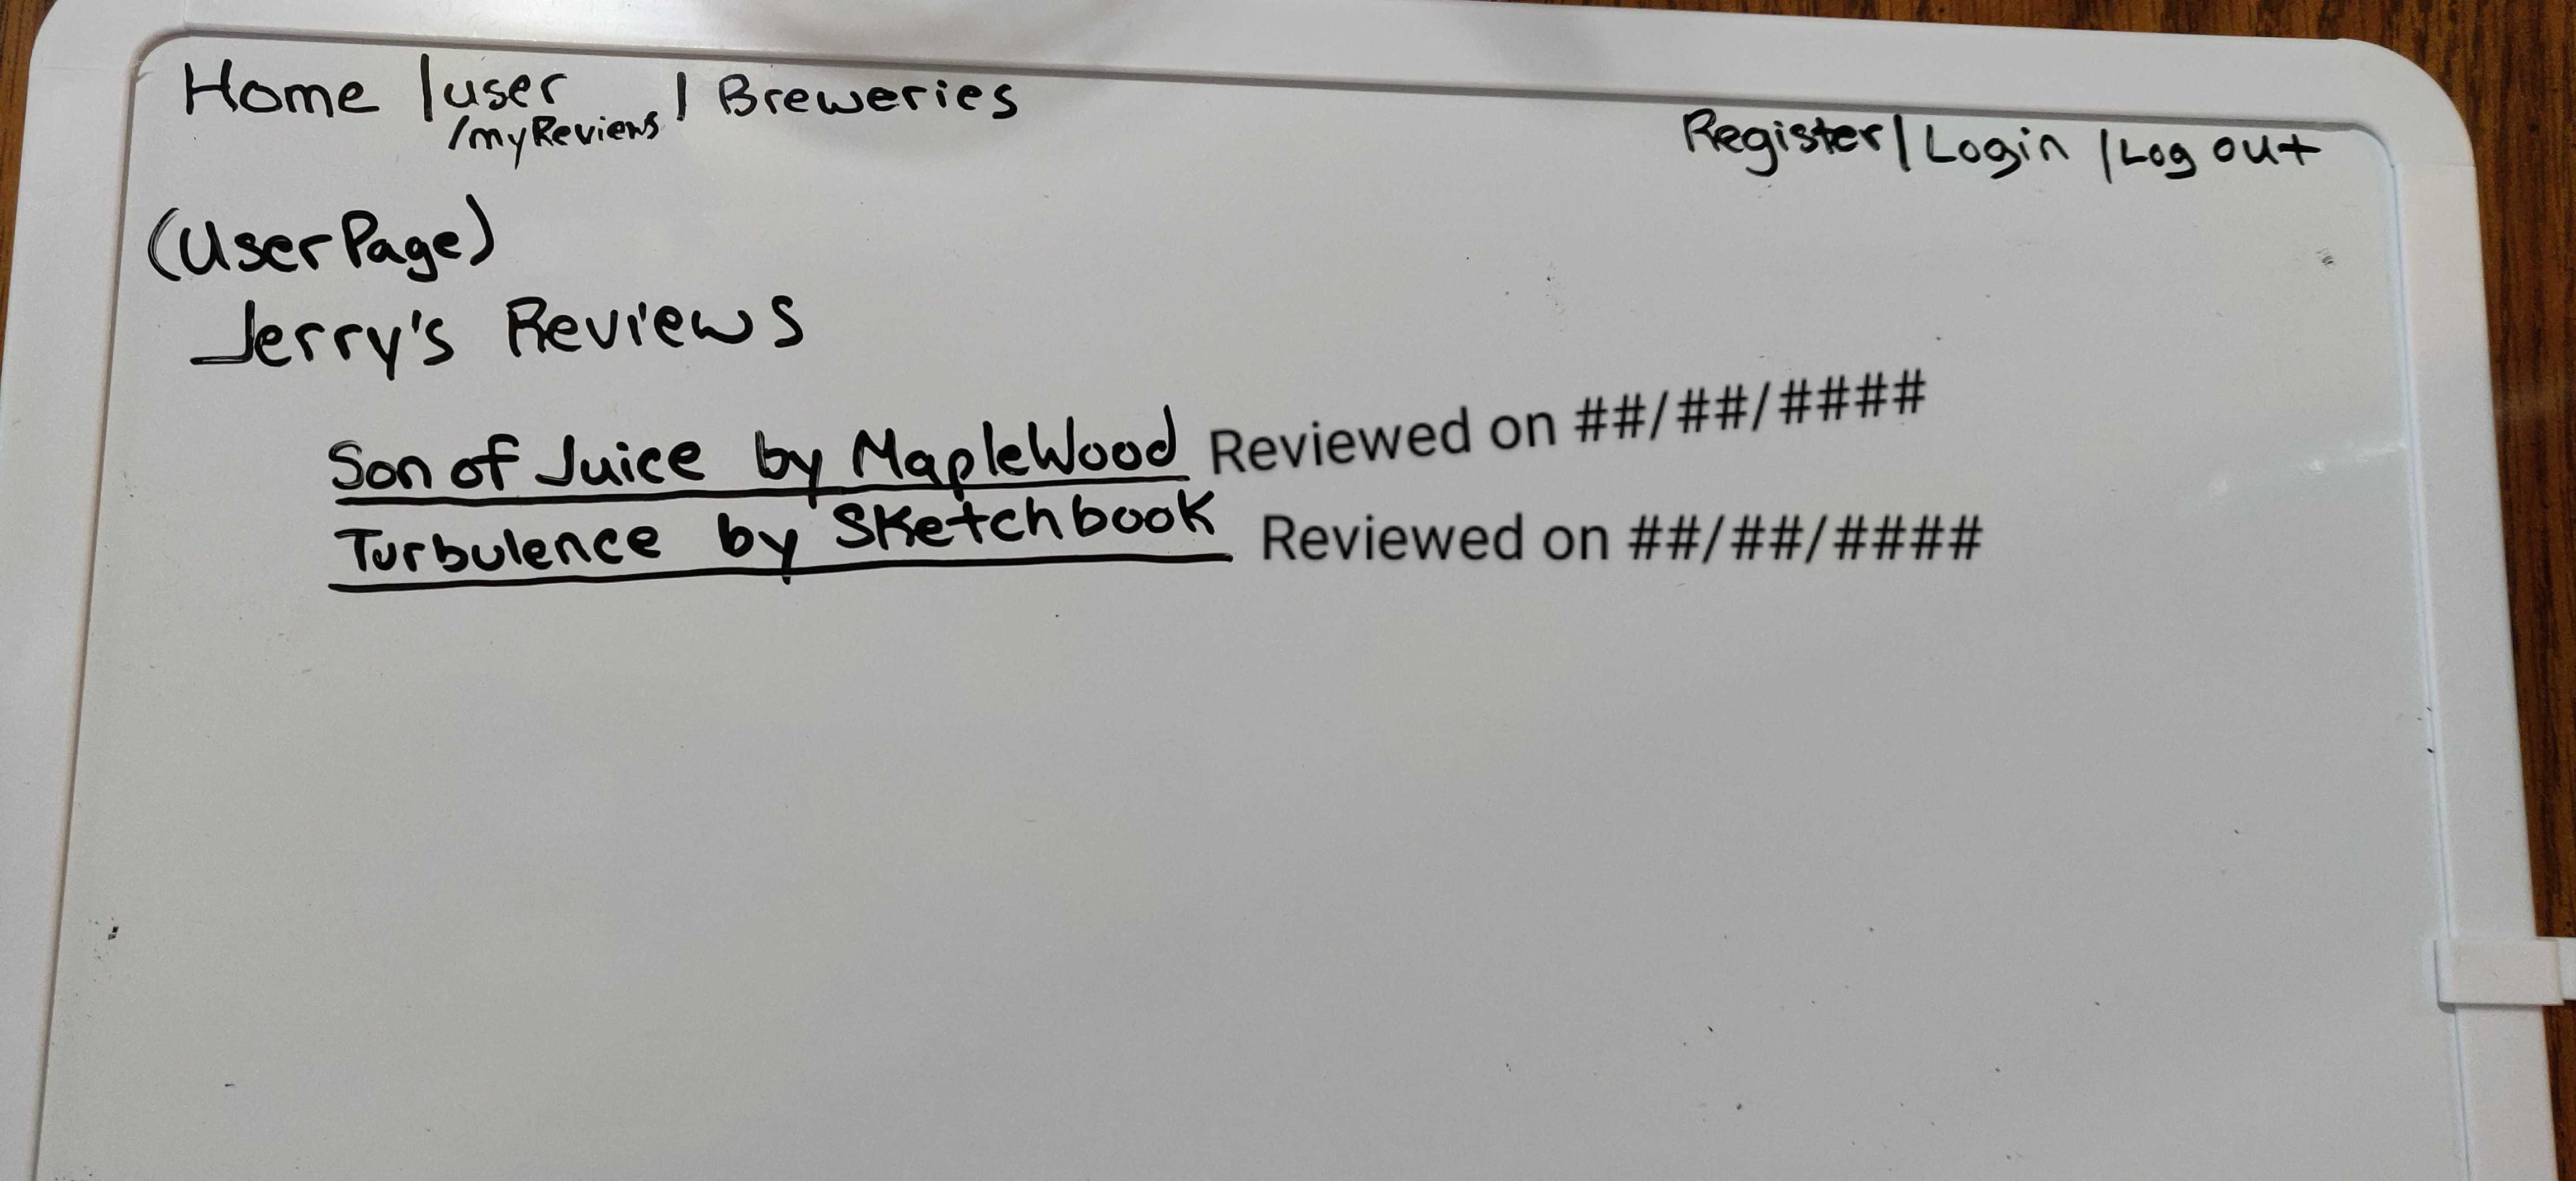 Home | user | Breweries
/myReviews
Register | Login | Log out
(User Page)
Jerry's Reviews
Son of Juice by MapleWood Reviewed on ##/##/####
Turbulence by Sketchbook Reviewed on ##/##/####